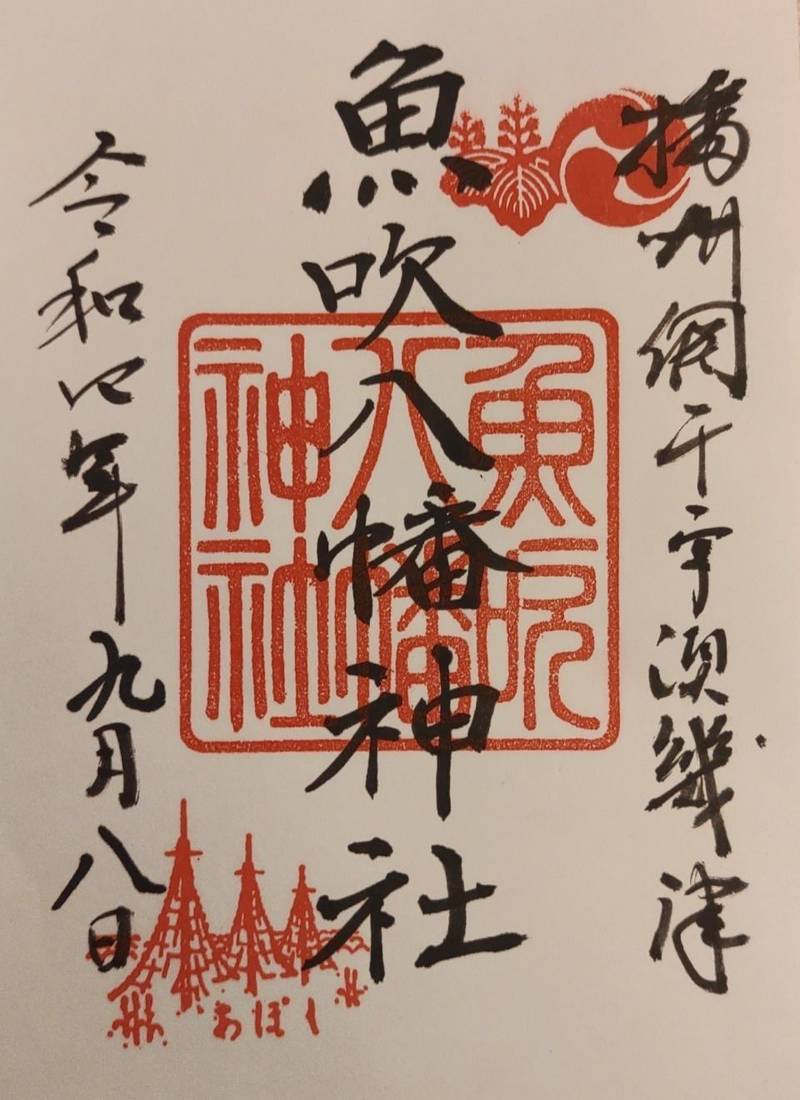 播州網干宇須幾津
魚吹八幡神社
魚吹
八幡
神社
令和四年九月八日
あぼし